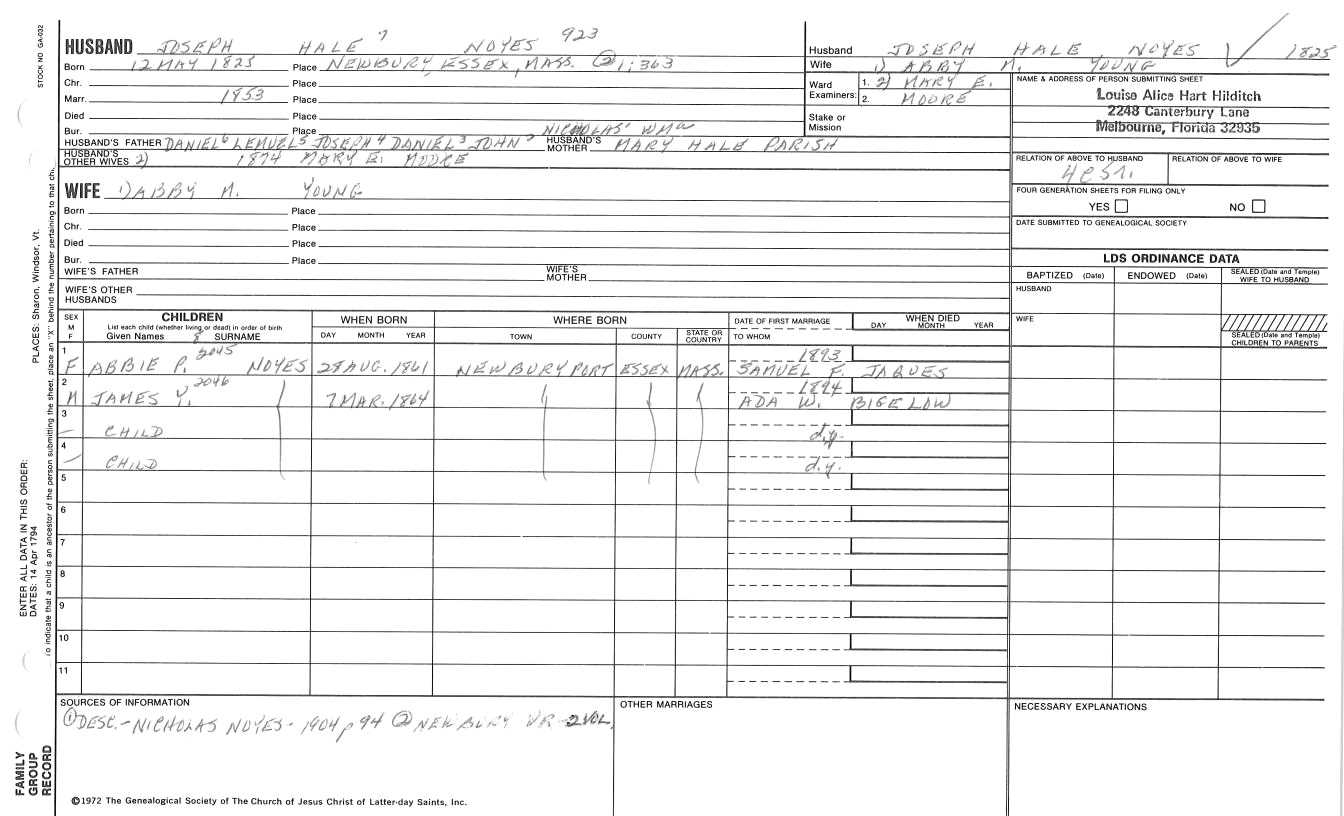 STOCK NO GA-032
HUSBAND JOSEPH HALE 7 NOYES 923
Born 12 MAY 1825 Place NEWBURY, ESSEX, MASS. ② 1; 363
Chr. Place
Marr. 1853 Place
Died Place
Bur. Place
NICHOLAS' WMᵃ
HUSBAND'S FATHER DANIEL 6 LEMUEL 5 JOSEPH 4 DANIEL 3 JOHN 2 HUSBAND'S MOTHER MARY HALE PARISH
HUSBAND'S OTHER WIVES 2) 1874 MARY E. MOORE
WIFE 1) ABBY M. YOUNG
Born Place
Chr. Place
Died Place
Bur. Place
WIFE'S FATHER WIFE'S MOTHER
WIFE'S OTHER HUSBANDS
Husband JOSEPH HALE NOYES 1825
Wife 1) ABBY M. YOUNG
Ward Examiners: 1. 2) MARY E.
2. MOORE
Stake or Mission
NAME & ADDRESS OF PERSON SUBMITTING SHEET
Louise Alice Hart Hilditch
2248 Canterbury Lane
Melbourne, Florida 32935
RELATION OF ABOVE TO HUSBAND RELATION OF ABOVE TO WIFE
4C5R.
FOUR GENERATION SHEETS FOR FILING ONLY
YES NO
DATE SUBMITTED TO GENEALOGICAL SOCIETY
LDS ORDINANCE DATA
BAPTIZED (Date) ENDOWED (Date) SEALED (Date and Temple) WIFE TO HUSBAND
HUSBAND
WIFE
SEALED (Date and Temple) CHILDREN TO PARENTS
SEX M F
CHILDREN
List each child (whether living or dead) in order of birth
Given Names 8 SURNAME
WHEN BORN
DAY MONTH YEAR
WHERE BORN
TOWN COUNTY STATE OR COUNTRY
DATE OF FIRST MARRIAGE
TO WHOM
WHEN DIED
DAY MONTH YEAR
1 2045 1893
F ABBIE P. NOYES 28 AUG. 1861 NEWBURYPORT ESSEX MASS. SAMUEL F. JAQUES
2 2046 1894
M JAMES Y. 7 MAR. 1864 ADA W. BIGELOW
3
– CHILD d.y.
4
– CHILD d.y.
5
6
7
8
9
10
11
SOURCES OF INFORMATION
① DESC.- NICHOLAS NOYES - 1904 p 94 ② NEWBURY VR - 2 VOL.
OTHER MARRIAGES
NECESSARY EXPLANATIONS
©1972 The Genealogical Society of The Church of Jesus Christ of Latter-day Saints, Inc.
PLACES: Sharon, Windsor, Vt.
To indicate that a child is an ancestor of the person submitting the sheet, place an "X" behind the number pertaining to that ch
ENTER ALL DATA IN THIS ORDER:
DATES: 14 Apr 1794
FAMILY GROUP RECORD